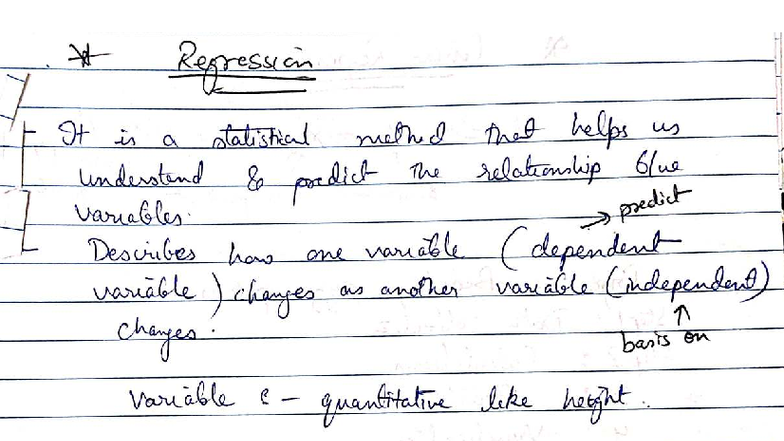 * Regression
It is a statistical method that helps us
understand & predict the relationship b/w
variables.
→ predict
Describes how one variable (dependent
variable) changes as another variable (independent)
changes.
↑
basis on
variable :- quantitative like height.